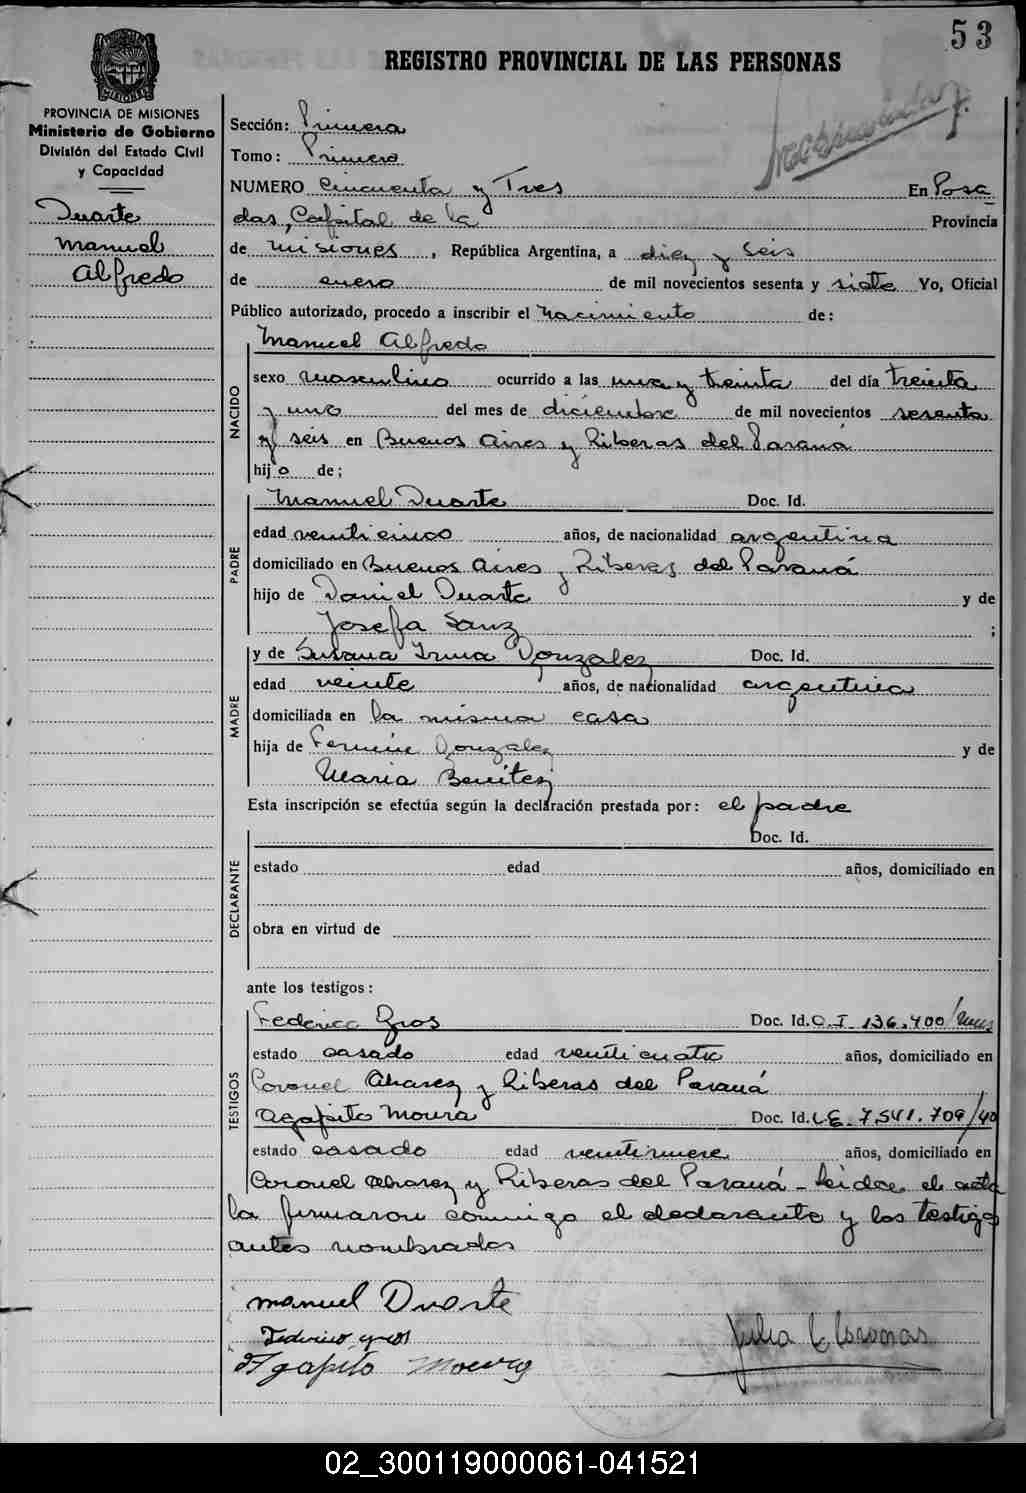 53
REGISTRO PROVINCIAL DE LAS PERSONAS
MISIONES
PROVINCIA DE MISIONES
Ministerio de Gobierno
División del Estado Civil
y Capacidad
Duarte
Manuel
Alfredo
Sección: Primera
Tomo: Primero
NUMERO Cincuenta y Tres En Posa
das, Capital de la Provincia
de Misiones, República Argentina, a diez y seis
de enero de mil novecientos sesenta y siete Yo, Oficial
Público autorizado, procedo a inscribir el nacimiento de:
NACIDO
Manuel Alfredo
sexo masculino ocurrido a las una y treinta del día treinta
y uno del mes de diciembre de mil novecientos sesenta
y seis en Buenos Aires y Riberas del Paraná
hijo de;
PADRE
Manuel Duarte Doc. Id.
edad veinticinco años, de nacionalidad argentina
domiciliado en Buenos Aires y Riberas del Paraná
hijo de Daniel Duarte y de
Josefa Sanz ;
MADRE
y de Susana Irma Gonzalez Doc. Id.
edad veinte años, de nacionalidad argentina
domiciliada en la misma casa
hija de Fermín Gonzalez y de
Maria Benitez
Esta inscripción se efectúa según la declaración prestada por: el padre
DECLARANTE
Doc. Id.
estado edad años, domiciliado en
obra en virtud de
ante los testigos:
TESTIGOS
Federico Gros Doc. Id. C.I. 136.400/Mnes
estado casado edad veinticuatro años, domiciliado en
Coronel Alvarez y Riberas del Paraná
Agapito Moura Doc. Id. L.E. 7.541.709/40
estado casado edad veintinueve años, domiciliado en
Coronel Alvarez y Riberas del Paraná - Leída el acta
la firmaron conmigo el declarante y los testigos
antes nombrados
Manuel Duarte
Federico Gros
Agapito Moura
02_300119000061-041521